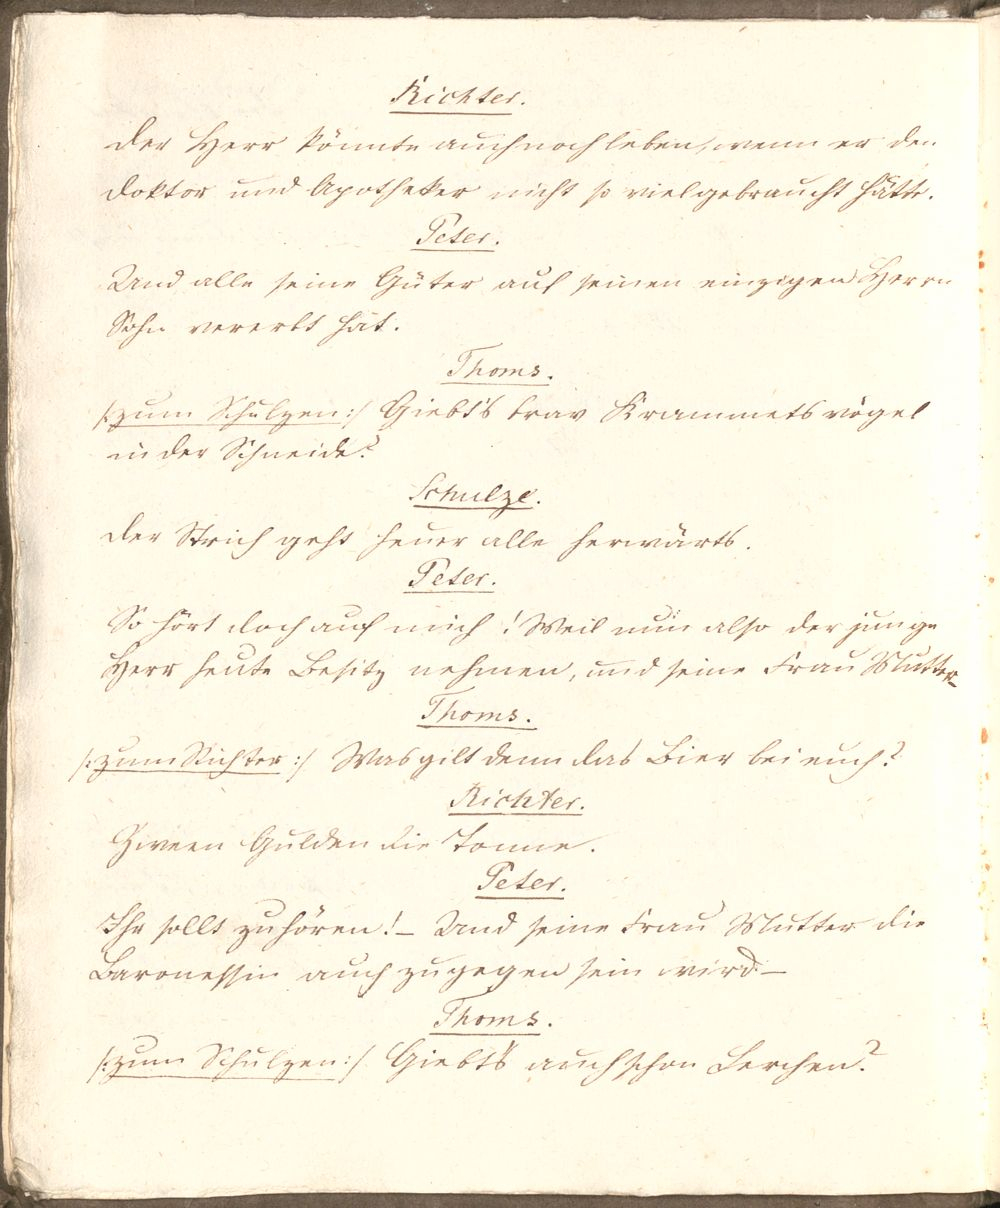 Richter.
Der Herr könnte auch noch leben, wenn er den
Doktor und Apotheker nicht so viel gebraucht hätte.
Peter.
Und alle seine Güter auf seinen einzigen Herrn
Sohn vererbt hat.
Thoms.
/:zum Schulzen:/ Giebt's brav Krammetsvögel
in der Schneide?
Schulze.
Der Strich geht heuer alle herwärts.
Peter.
So hört doch auf mich! Weil nun also der junge
Herr heute Besitz nehmen, und seine Frau Mutter_
Thoms.
/:zum Richter:/ Was gilt denn das Bier bei euch?
Richter.
Zween Gulden die Tonne.
Peter.
Ihr sollt zuhören! _ Und seine Frau Mutter die
Baronessin auch zugegen sein wird _
Thoms.
/:zum Schulzen:/ Giebt's auch schon Lerchen?